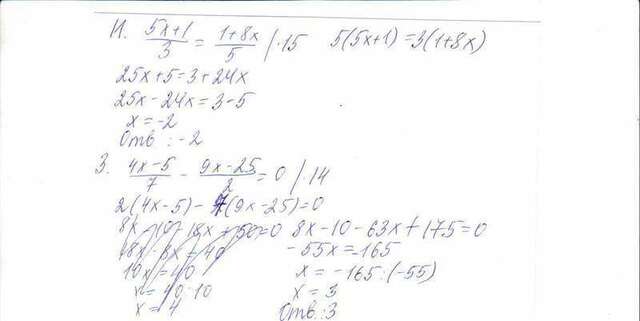 И. (5x+1)/3 = (1+8x)/5 /·15 5(5x+1)=3(1+8x)
25x+5=3+24x
25x-24x=3-5
x=-2
Отв:-2
З. (4x-5)/7 - (9x-25)/2 = 0 /·14
2(4x-5)-7(9x-25)=0
8x-10-18x+50=0 8x-10-63x+175=0
-55x=-165
10x=40 x=-165:(-55)
x=40:10 x=3
x=4 Отв:3